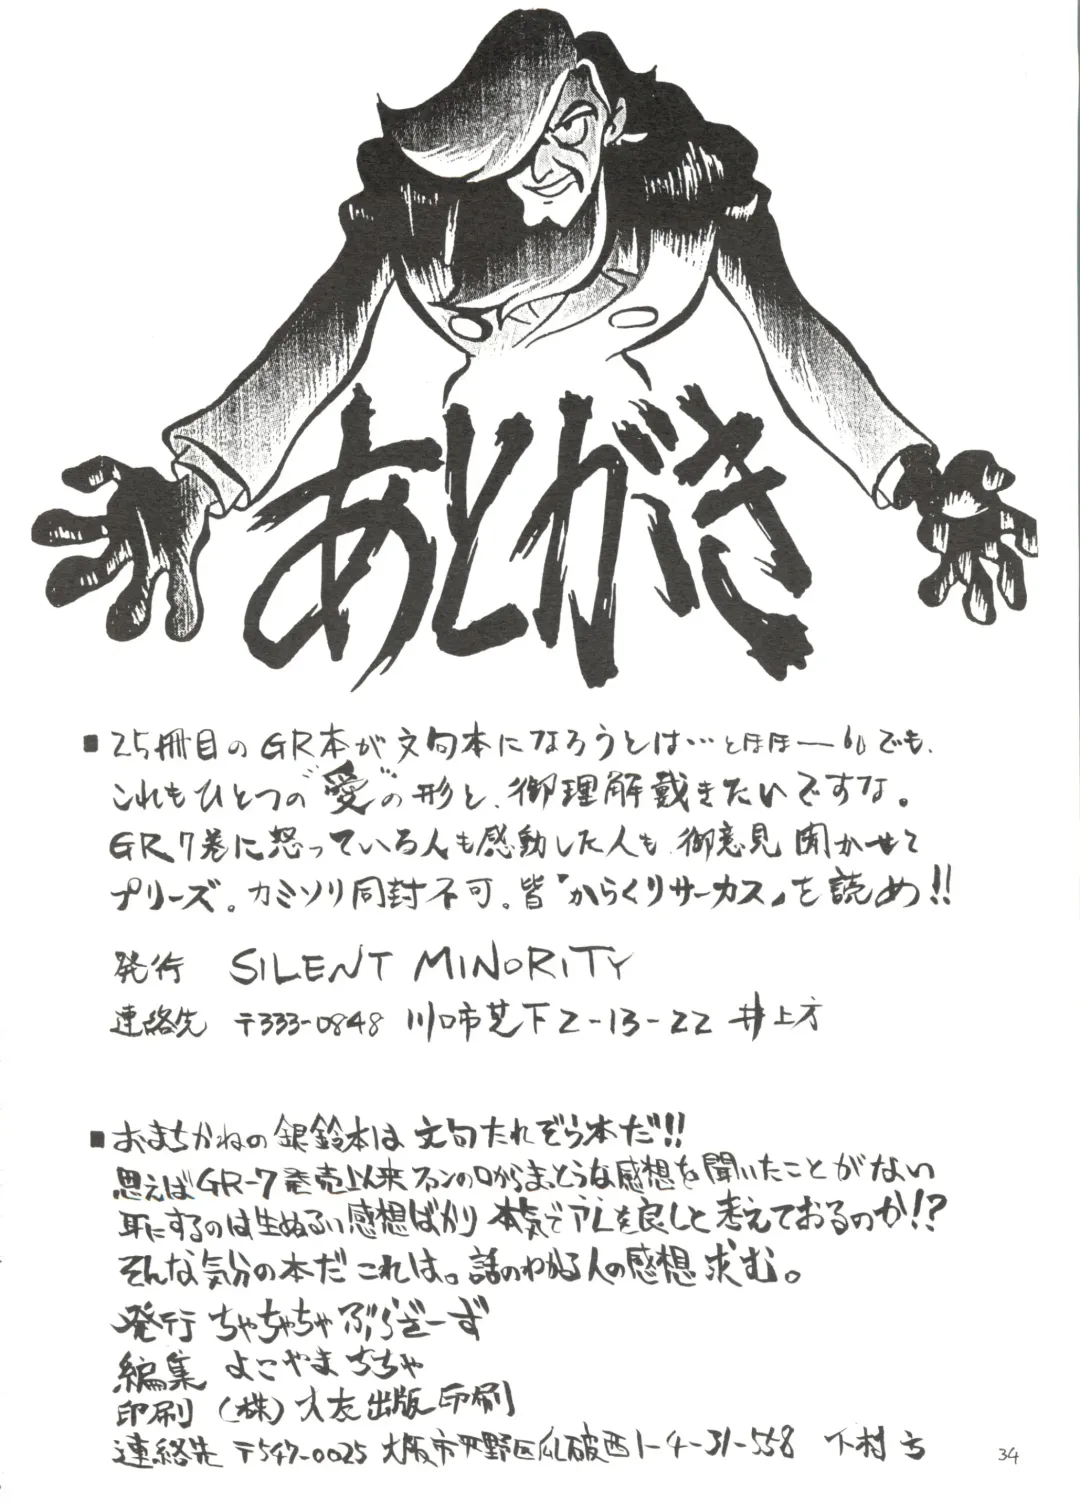 あとがき
■25冊目のGR本が文句本になろうとは…とほほー。でも、
これもひとつの"愛"の形と、御理解戴きたいですな。
GR7巻に怒っている人も感動した人も御意見聞かせて
プリーズ。カミソリ同封不可。皆『からくりサーカス』を読め!!
発行 SILENT MINORITY
連絡先 〒333-0848 川口市芝下2-13-22 井上方
■おまちかねの銀鈴本は文句たれぞう本だ!!
思えばGR-7発売以来ファンの口からまっとうな感想を聞いたことがない
耳にするのは生ぬるい感想ばかり 本気でアレを良しと考えておるのか!?
そんな気分の本だこれは。話のわかる人の感想求む。
発行 ちゃちゃちゃぶらざーず
編集 よこやまちちゃ
印刷 (株)大友出版印刷
連絡先 〒547-0025 大阪市平野区瓜破西1-4-31-558 下村方
34